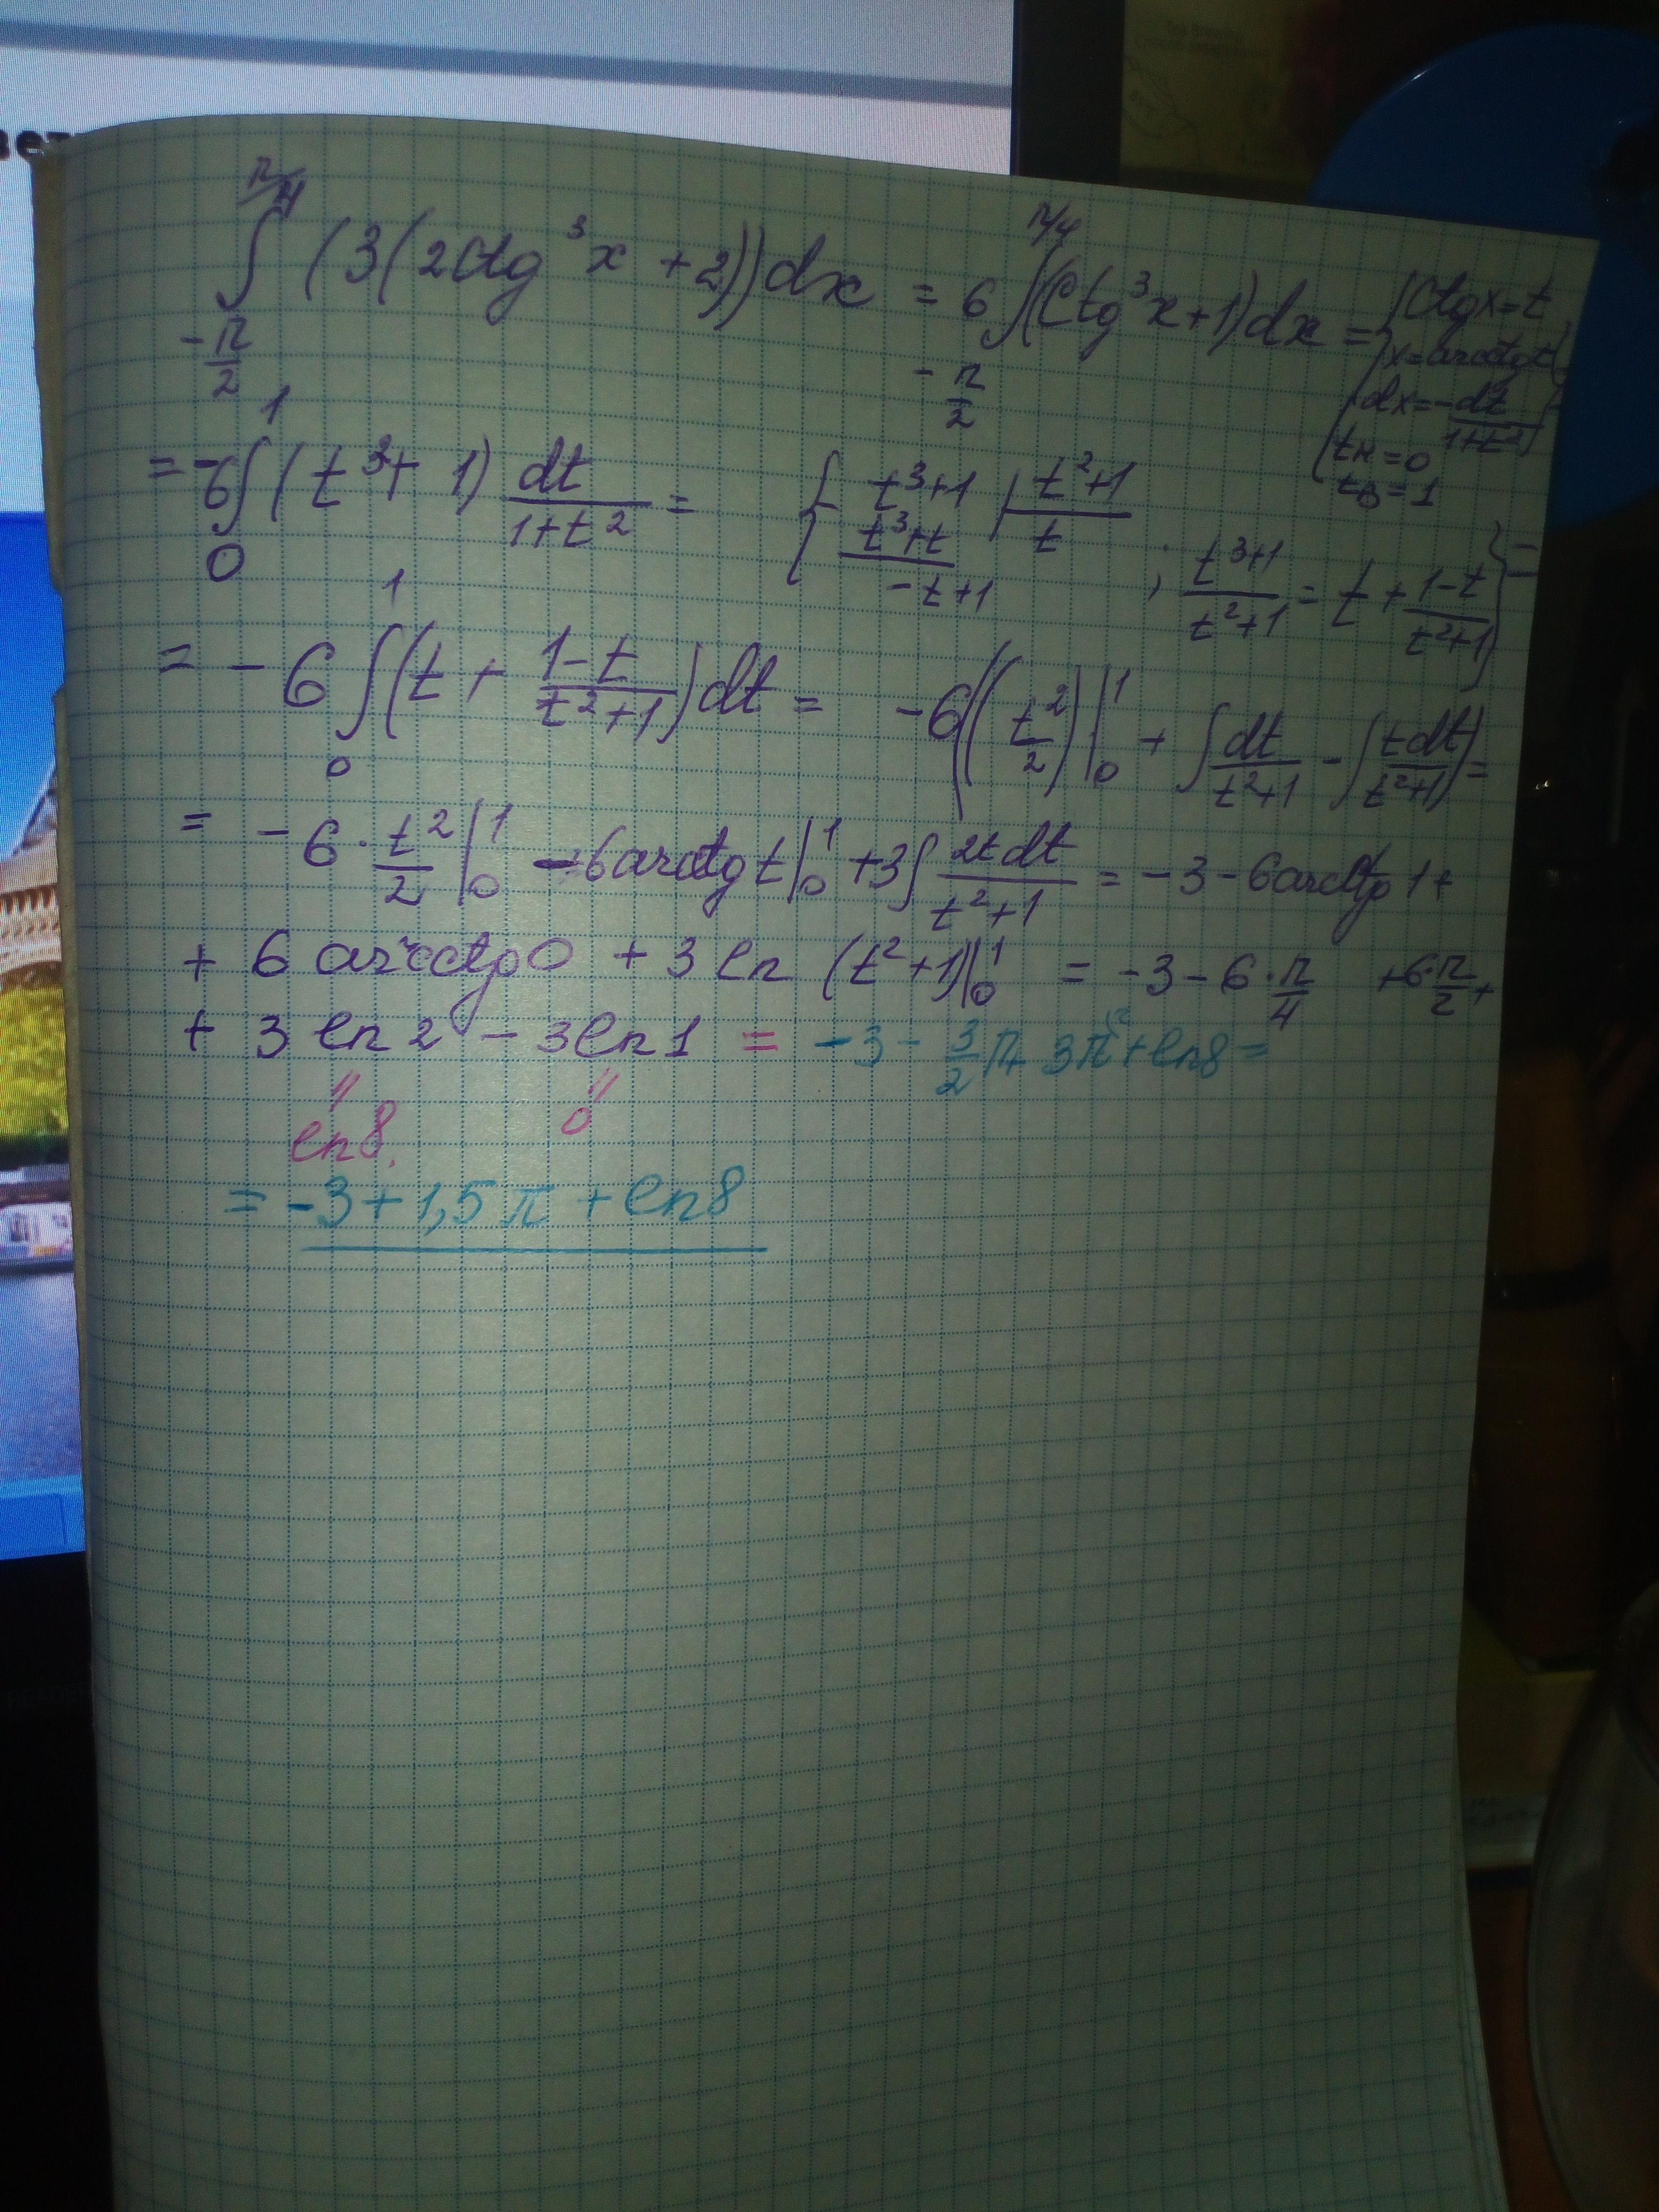 ∫_{-π/2}^{π/4} (3(2ctg³x + 2))dx = 6∫_{-π/2}^{π/4}(ctg³x+1)dx = { ctgx=t
x=arcctgt
dx=-dt/(1+t²)
tн=0
tв=1 }
= -6∫_0^1 (t³+1) dt/(1+t²) = { t³+1 | t²+1
t³+t | t
-t+1 ; (t³+1)/(t²+1) = t + (1-t)/(t²+1) } =
= -6 ∫_0^1 (t + (1-t)/(t²+1))dt = -6((t²/2)|_0^1 + ∫dt/(t²+1) - ∫tdt/(t²+1)) =
= -6·t²/2|_0^1 - 6arcctg t|_0^1 + 3∫2tdt/(t²+1) = -3 - 6arcctg 1 +
+ 6 arcctg 0 + 3 ln (t²+1)|_0^1 = -3 - 6·π/4 + 6·π/2 +
+ 3 ln 2 - 3 ln 1 = -3 - 3/2 π + 3π + ln8 =
ln 8. 0
= -3 + 1,5π + ln8